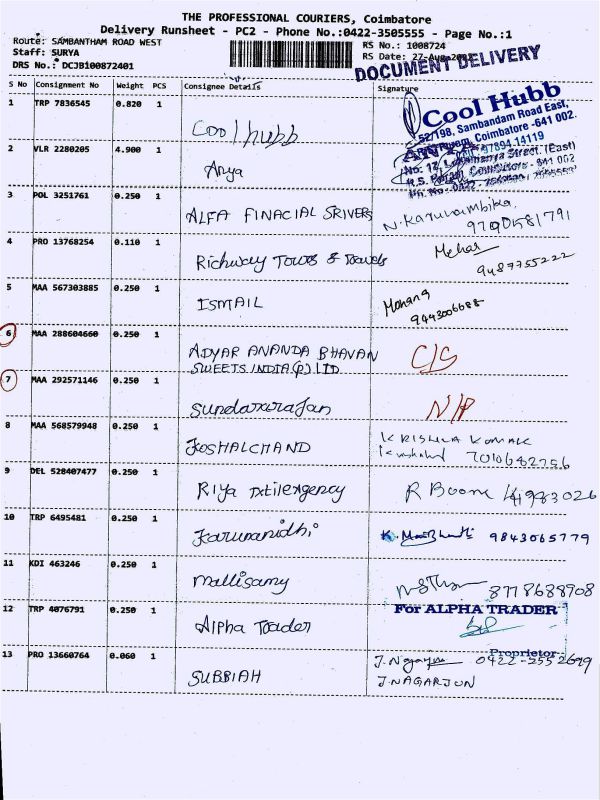 THE PROFESSIONAL COURIERS, Coimbatore
Delivery Runsheet - PC2 - Phone No.:0422-3505555 - Page No.:1
Route: SAMBANTHAM ROAD WEST
RS No.: 1008724
Staff: SURYA
RS Date: 27-Aug-
DRS No.: DCJB100872401
DOCUMENT DELIVERY
S No Consignment No Weight PCS Consignee Details Signature
1 TRP 7836545 0.820 1 Cool hubb
Cool Hubb
52/198, Sambandam Road East,
Coimbatore -641 002.
97894.14119
2 VLR 2280205 4.900 1 Anya
Street. (East)
R.S. Coimbatore - 641 002
3 POL 3251761 0.250 1 ALFA FINACIAL SRIVERS N. Karunambika
4 PRO 13768254 0.110 1 Richway Tours & Travels Mehar
9487755222
5 MAA 567303885 0.250 1 ISMAIL Mohana
9443006688
6 MAA 288604660 0.250 1 ADYAR ANANDA BHAVAN C/S
SWEETS INDIA (P) LTD
7 MAA 292571146 0.250 1 Sundararajan N/P
8 MAA 568579948 0.250 1 KOSHALCHAND
7010682756
9 DEL 528407477 0.250 1 Riya R Boome
10 TRP 6495481 0.250 1 Karunanidhi 9843065779
11 KDI 463246 0.250 1 Mallisamy
8778688908
12 TRP 4076791 0.250 1 Alpha Trader For ALPHA TRADER
Proprietor
13 PRO 13660764 0.060 1 SUBBIAH 0422-2552699
J. NAGARJUN